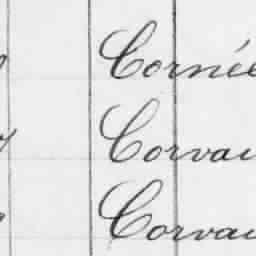 Corné
Corvai
Corvai